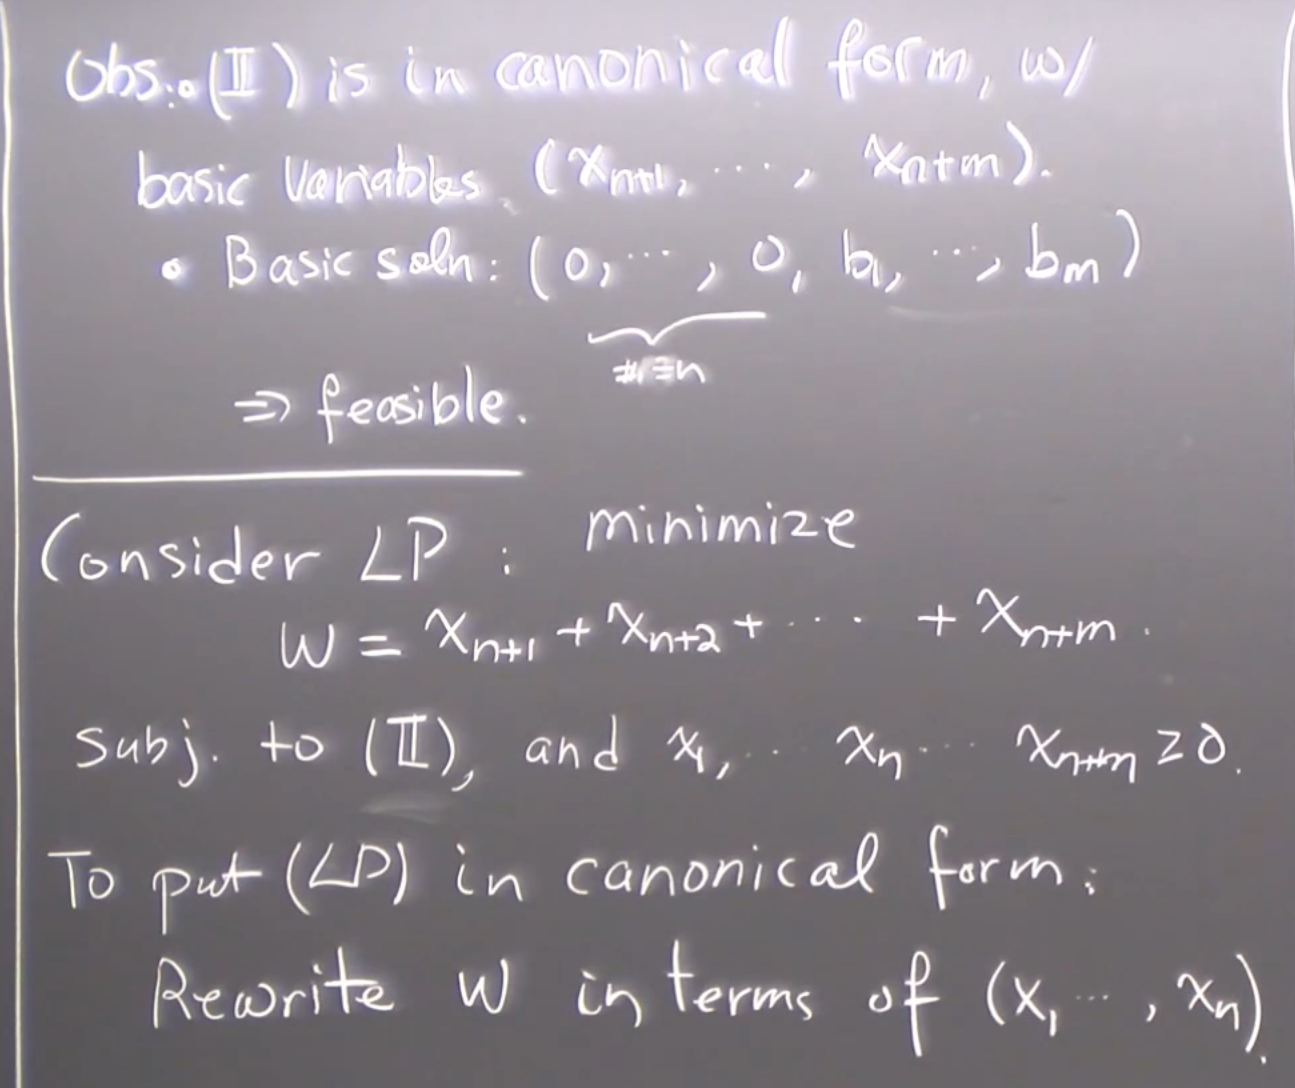 Obs.: (II) is in canonical form, w/
basic variables (xₙ₊₁, ⋯, xₙ₊ₘ).
• Basic soln: (0, ⋯, 0, b₁, ⋯, bₘ)
# = n
⇒ feasible.
Consider LP : minimize
W = xₙ₊₁ + xₙ₊₂ + ⋯ + xₙ₊ₘ.
subj. to (II), and x₁, ⋯ xₙ ⋯ xₙ₊ₘ ≥ 0.
To put (LP) in canonical form:
Rewrite W in terms of (x₁ ⋯, xₙ).